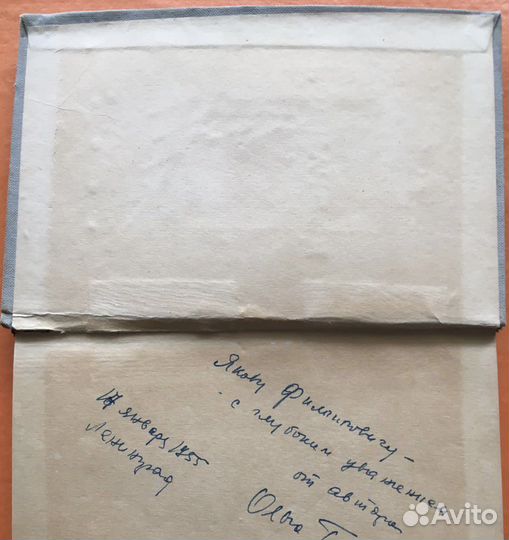 Якову Филипповичу –
– с глубоким уважением
от автора
Ольга Г
17 января 1955
Ленинград
Avito